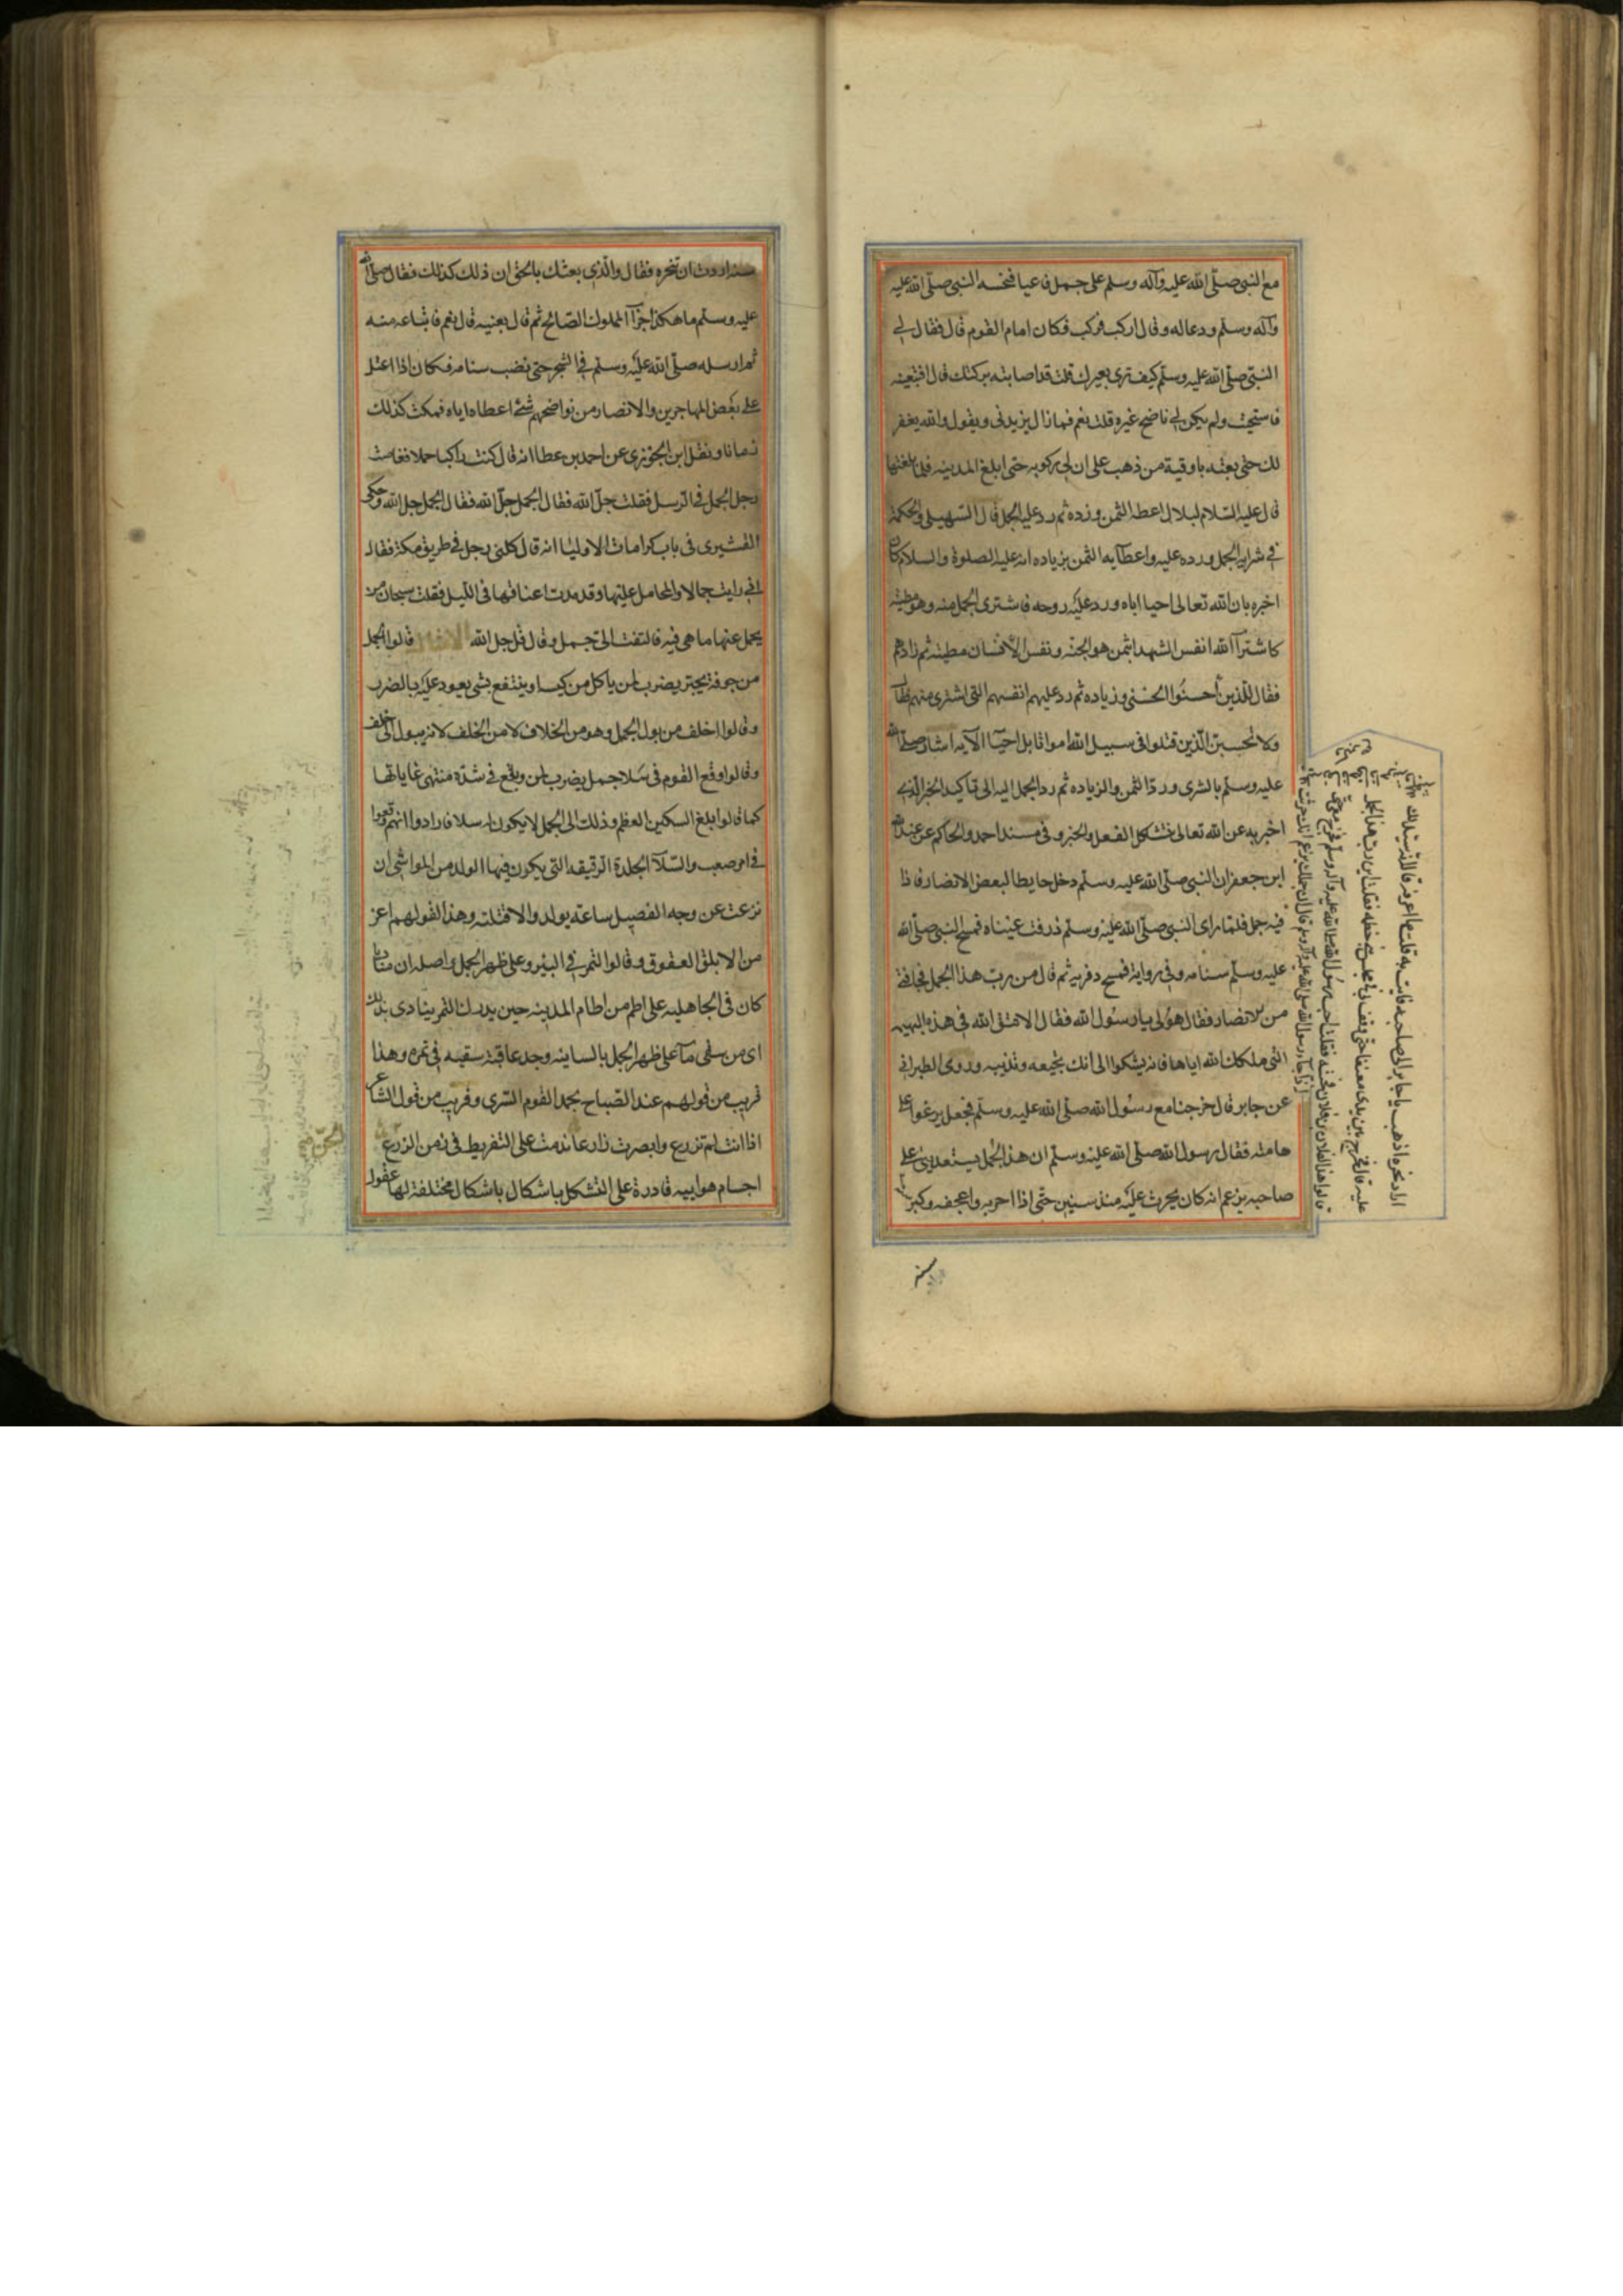 مع النبى صلّى الله عليه وآله وسلم على جمل فاعيا فنخسه النبى صلّى الله عليه
وآله وسلم ودعا له وقال اركب فركب فكان امام القوم قال فقال لى
النبى صلّى الله عليه وسلم كيف ترى بعيرك قلت قد اصابته بركتك قال افتبعنيه
فاستحيت ولم يكن لى ناضح غيره قلت نعم فما زال يزيدنى ويقول والله يغفر
لك حتى بعته باوقية من ذهب على ان لى ركوبه حتى ابلغ المدينه فلما بلغتها
قال عليه السلام لبلال اعطه الثمن وزده ثم رد علىّ الجمل قال السهيلى والحكمة
فى شرايه الجمل ورده عليه واعطآيه الثمن بزياده انه عليه الصلوة والسلام كان
اخبره بان الله تعالى احيا اباه ورد عليه روحه فاشترى الجمل منه وهو مطيته
كما اشترآ الله انفس الشهدا بثمن هو الجنه ونفس الأنسان مطيته ثم زادهم
فقال للذين أحسنُوا الحسْنى وزياده ثم رد عليهم انفسهم التى اشترى منهم فقال
ولا تحسبن الّذين قتلوا فى سبيل الله امواتا بل احيآ الآيه اشار صلّى الله
عليه وسلم بالشرى ورد الثمن والزياده ثم رد الجمل اليه الى تاكيد الخبر الّذى
اخبر به عن الله تعالى فتشكل الفعل والخبر وفى مسند احمد والحاكم عن عبد الله
ابن جعفر ان النبى صلّى الله عليه وسلم دخل حايطا لبعض الانصار فاذا
فيه جمل فلما راى النبى صلّى الله عليه وسلم ذرفت عيناه فمسح النبى صلّى الله
عليه وسلم سنامه وفى رواية فمسح دفريه ثم قال من رب هذا الجمل فجا فتى
من الانصار فقال هو لى يا رسول الله فقال الا تتق الله فى هذه البهيمه
التى ملكك الله اياها فانه يشكوا الى انك تجيعه وتذيبه وروى الطبرانى
عن جابر قال خرجنا مع رسُول الله صلّى الله عليه وسلم فجعل يرغوا على
هامته فقال رسول الله صلّى الله عليه وسلم ان هذا الجمل يستعدينى على
صاحبه يزعم انه كان يحرث عليه منذ سنين حتى اذا اجربه واعجفه وكبر
اراد نحره اذهب يا جابر الى صاحبه فات به قلت ما اعرفه قال انه سيدلك
عليه قال فخرج بين يدى معنقا حتى وقف فى مجلس بنى خطمه فقلت اين رب هذا الجمل
قالوا هذا لفلان بن فلان فجئته فقلت اجب رسول الله صلى الله عليه وآله وسلم فخرج معى
سنه
سنه اردت ان تنحره فقال والّذى بعثك بالحق ان ذلك كذلك فقال صلّى الله
عليه وسلم ما هكذا جزآ المملوك الصالح ثم قال بعنيه قال نعم فابتاعه منه
ثم ارسله صلّى الله عليه وسلم فى الشجر حتى نصب سنامه فكان اذا اعتل
على بعض المهاجرين والانصار من نواضحهم شئ اعطاه اياه فمكث كذلك
زمانا ونقل ابن الجوزى عن احمد بن عطا انه قال كنت راكبا جملا فغاصت
رجل الجمل فى الرمل فقلت جلّ الله فقال الجمل جلّ الله وحكى
القشيرى فى باب كرامات الاوليا انه قال كلنى رجل فى طريق مكة فقال
انى رايت جمالا والمحامل عليها وقد مدت اعناقها فى الليل فقلت سبحان من
يحمل عنها ما هى فيه فالتفت الىّ جمل وقال قل جل الله الامثال قالوا الجمل
من جوفه يجتر يضرب لمن ياكل من كسبه او ينتفع بشى يعود عليه بالضرر
وقالوا اخلف من بول الجمل وهو من الخلاف لا من الخلف لانه يبول الى خلف
وقالوا وقع القوم فى سَلا جمل يضرب لمن وقع فى شدّه منتهى غاياتها
كما قالوا بلغ السكين العظم وذلك الى الجمل لا يكون له سلا فارادوا انهم وقعوا
فى امر صعب والسّلآ الجلدة الرقيقه التى يكون فيها الولد من المواشى ان
نزعت عن وجه الفصيل ساعته يولد والا قتلته وهذا لقولهم اعز
من الابلق العقوق وقالوا الثمر فى البئر وعلى ظهر الجمل واصله ان مناديا
كان فى الجاهليه على اطم من اطام المدينه حين يدرك الثمر ينادى بذلك
اى من سقى مآ على ظهر الجمل بالسانيه وجد عاقبة سقيه فى ثمره وهذا
قريب من قولهم عند الصباح يحمد القوم السرى وقريب من قول الشاعر
اذا انت لم تزرع وابصرت زارعا ندمت على التفريط فى زمن الزرع
الجنّ
اجسام هواييه قادرة على التشكل باشكال باشكال مختلفة لها عقول